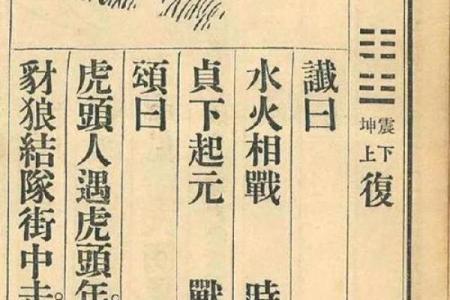 震下
坤上
復
讖曰
水火相戰 時
貞下起元 戰
頌曰
虎頭人遇虎頭年。
豺狼結隊街中走。